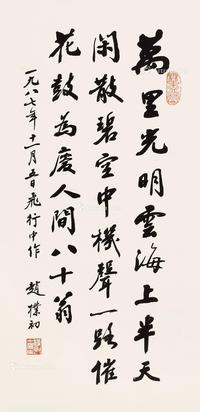 萬里光明雲海上半天
閑散碧空中機聲一路催
花鼓為慶人間八十翁
一九八七年十一月五日飛行中作 趙樸初